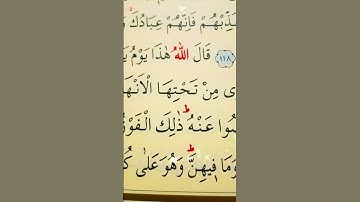 ذِّبْهُمْ فَاِنَّهُمْ عِبَادُكَ
﴿١١٨﴾ قَالَ اللّٰهُ هٰذَا يَوْمُ
مِنْ تَحْتِهَا الْاَنْهَا
عَنْهُ ذٰلِكَ الْفَوْ
وَمَا فٖيهِنَّ وَهُوَ عَلٰى كُ